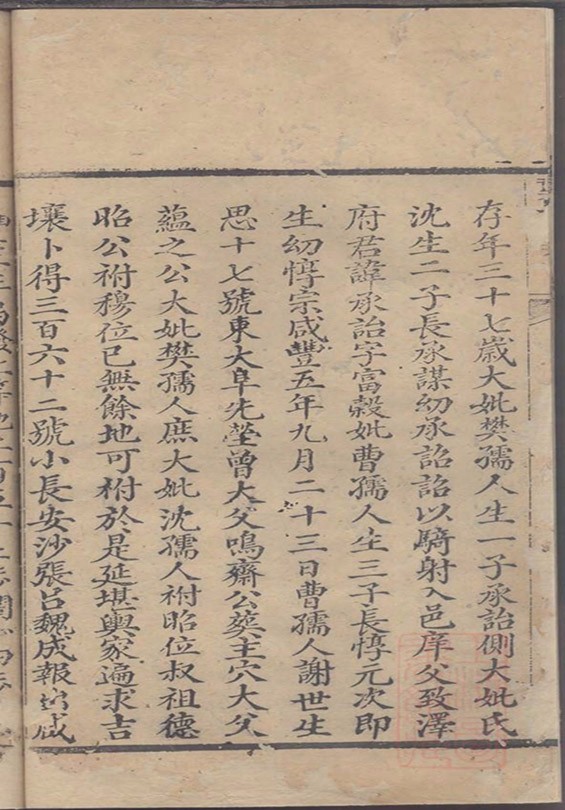 存年三十七歲大妣樊孺人生一子承詒側大妣氏
沈生二子長承謀幼承詔詔以騎射入邑庠父致澤
府君諱承詒字富穀妣曹孺人生三子長惇元次即
生幼惇宗咸豐五年九月二十三日曹孺人謝世生
思十七號東大阜先塋曾大父鳴齋公葬主穴大父
蘊之公大妣樊孺人庶大妣沈孺人祔昭位叔祖德
昭公祔穆位已無餘地可祔於是延堪輿家遍求吉
壤卜得三百六十二號小長安沙張呂魏成報